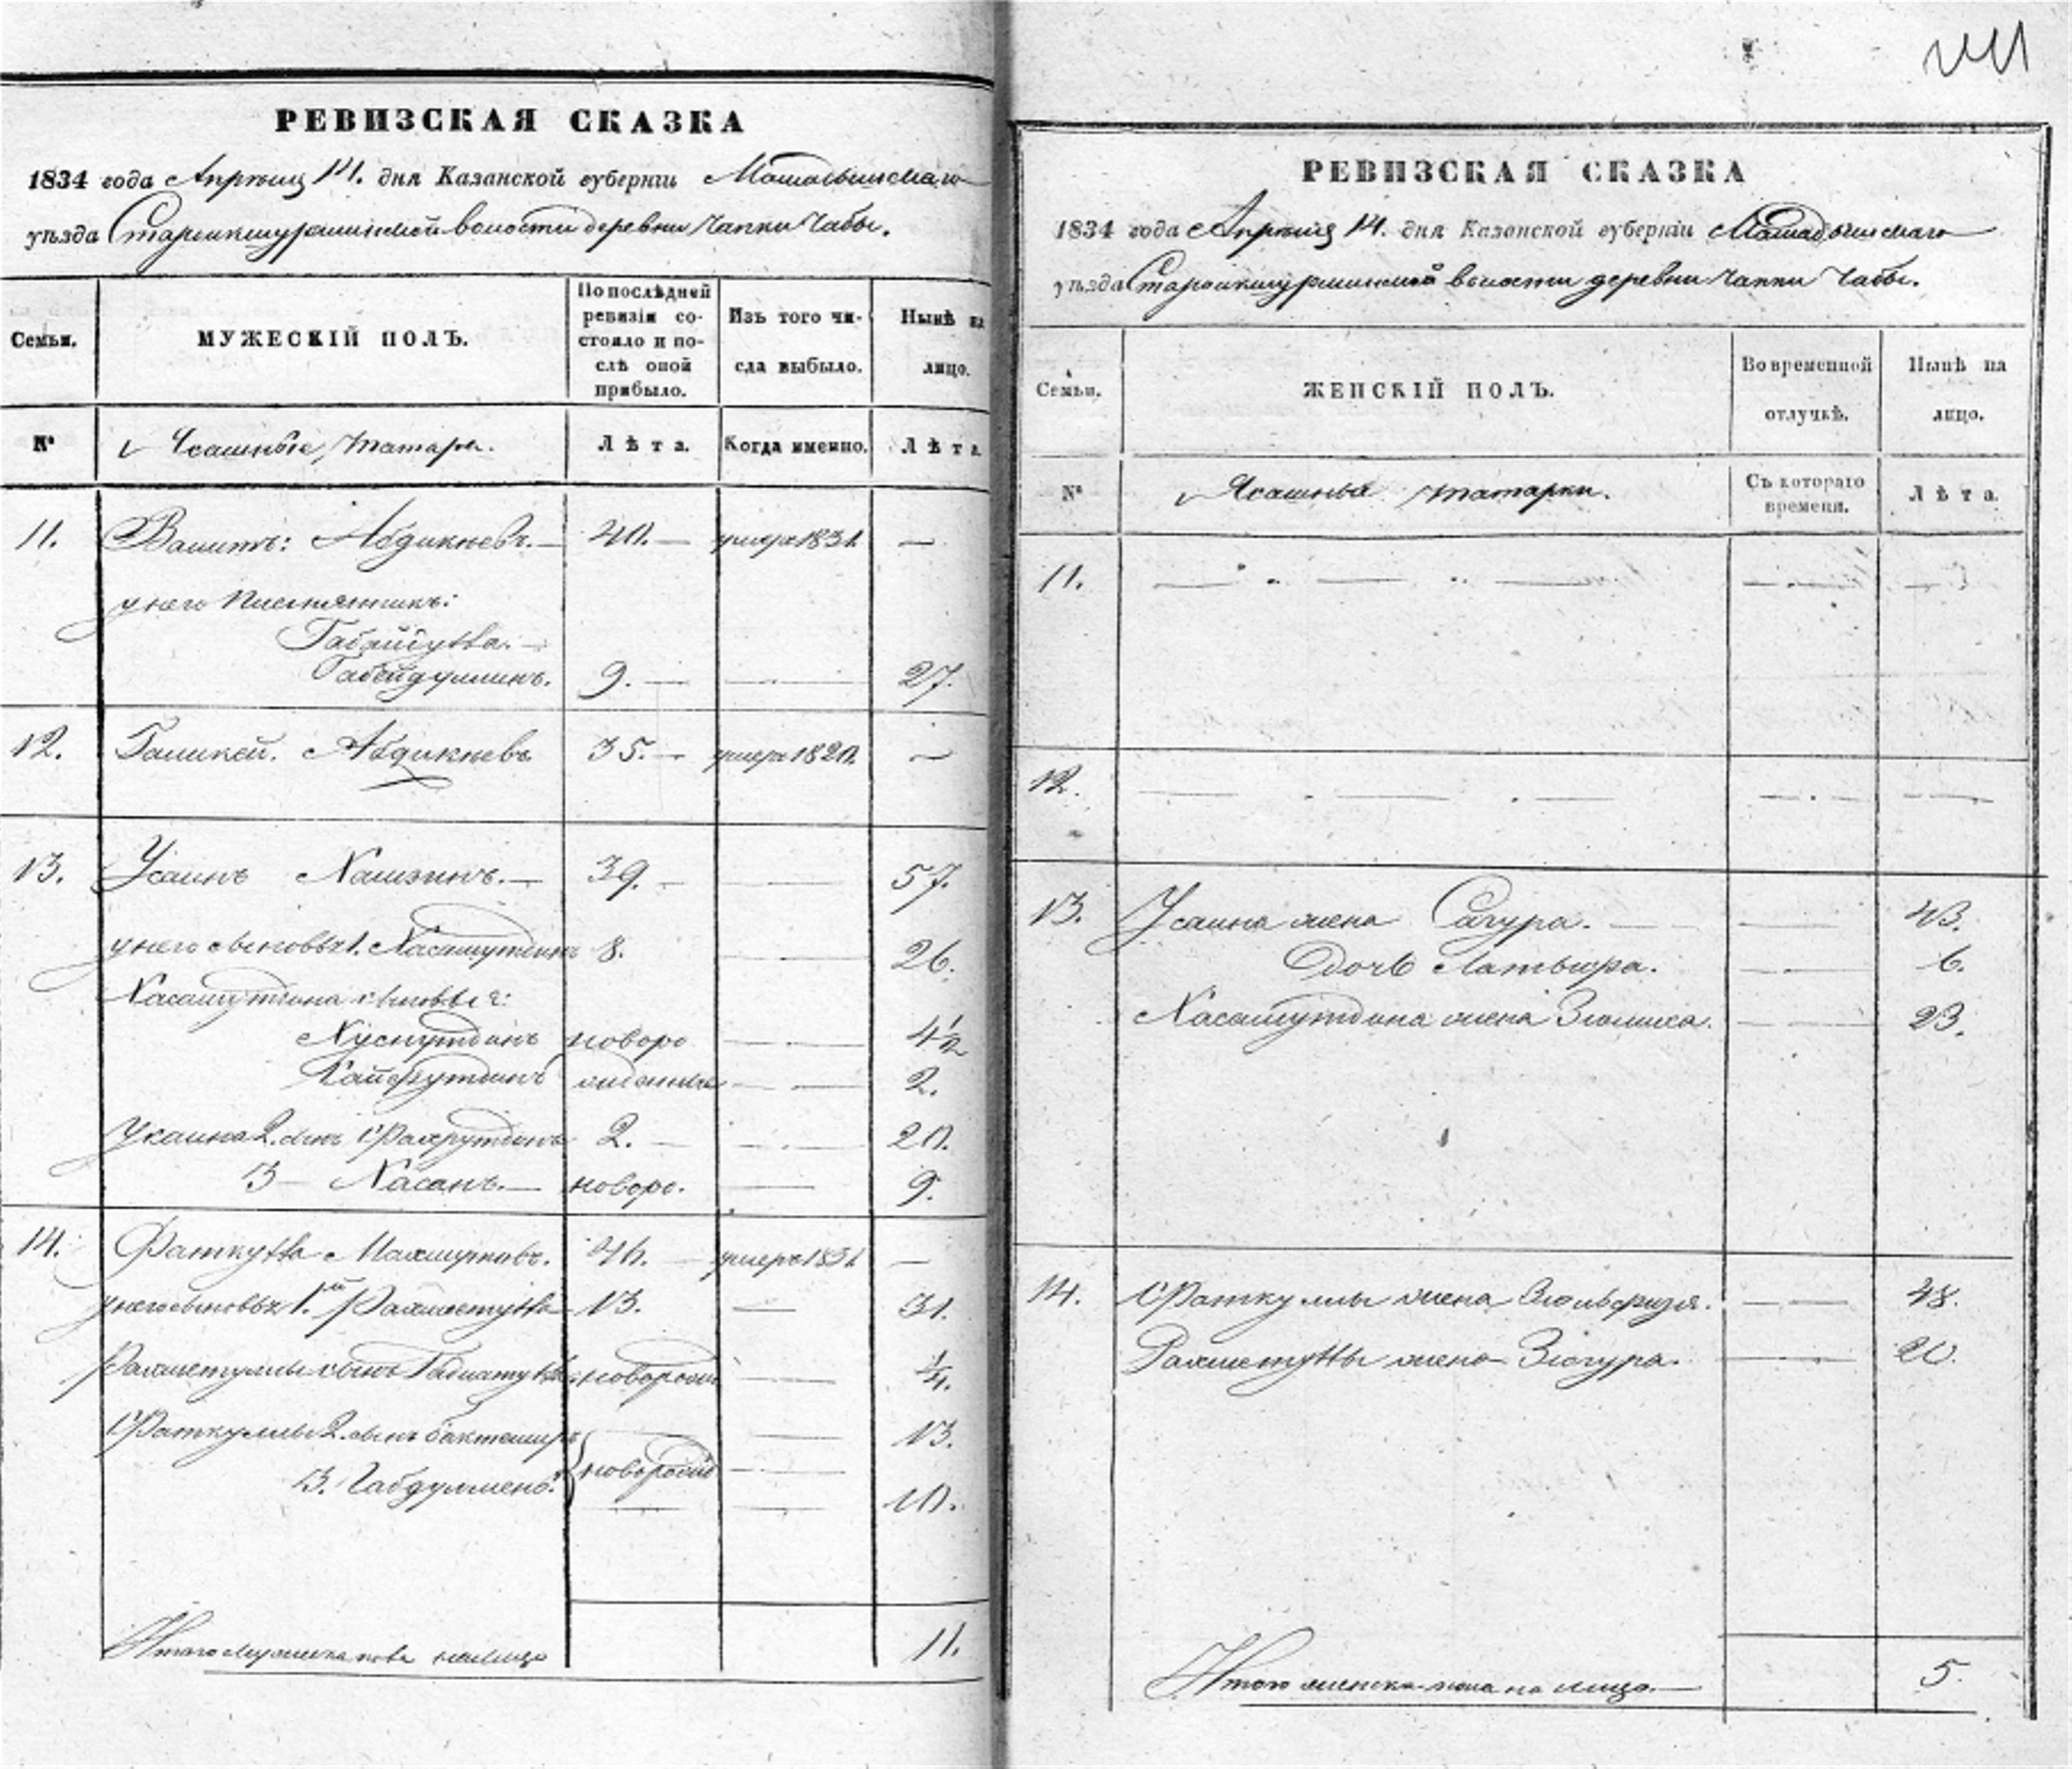 РЕВИЗСКАЯ СКАЗКА
1834 года Апрѣля 14. дня Казанской губерніи Мамадышскаго
уѣзда Староикшурминской волости деревни Чапки Чабы.
Семьи.
МУЖЕСКІЙ ПОЛЪ.
По послѣдней ревизіи состояло и послѣ оной прибыло.
Изъ того числа выбыло.
Нынѣ на лицо.
№
Ясашные татара.
Лѣта.
Когда именно.
Лѣта.
11. Вашитъ: Абдикѣевъ. — 40. — умеръ 1831. —
у него племянникъ:
Габайдулла. —
Габейдуллинъ. 9. — — 27.
12. Галикей. Абдикѣевъ 35. — умеръ 1820. —
13. Усаинъ Халитинъ. — 39. — — 57.
у него сыновья 1. Хасамутдинъ 8. — 26.
Хасамутдина сыновья:
Хуснутдинъ новоро — 4 1/2
Кайфутдинъ жденные — 2.
Усаина 2. сынъ Фахрутдинъ 2. — — 20.
3 — Хасанъ. — новоро. — 9.
14. Фаткулла Махмутовъ. 46. — умеръ 1831 —
у него сыновья 1.й Рахметулла 13. — 31.
Рахметуллы сынъ новорожд — 1/4.
Фаткуллы 2. сынъ Бактемиръ — — 13.
3. Габдулменъ. новорожд — 10.
Итого мужеска пола налицо 11.
РЕВИЗСКАЯ СКАЗКА
1834 года Апрѣля 14. дня Казанской губерніи Мамадышскаго
уѣзда Староикшурминской волости деревни Чапки Чабы.
Семьи.
ЖЕНСКІЙ ПОЛЪ.
Во временной отлучкѣ.
Нынѣ на лицо.
№
Ясашныя татарки.
Съ котораго времени.
Лѣта.
11. — — — — —
12. — — — — —
13. Усаина жена Сагура. — — 43.
Дочь Латыфа. — 6.
Хасамутдина жена Зюлиха. — 23.
14. Фаткуллы жена Зюльфизя. — 48.
Рахметуллы жена Зюгура. — 20.
Итого женска пола на лицо. — 5.